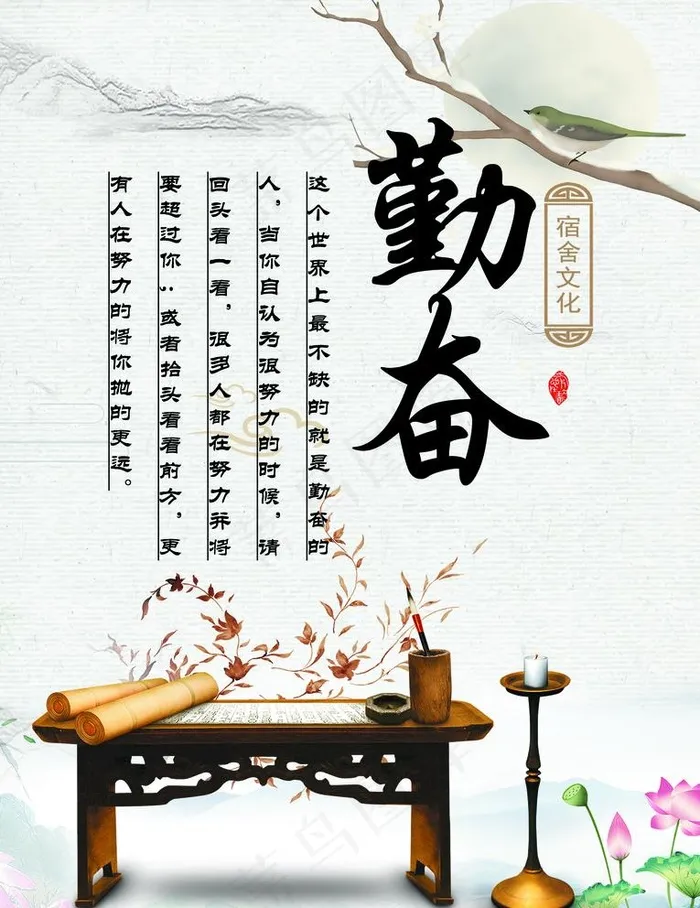 勤奋
宿舍文化
这个世界上最不缺的就是勤奋的
人，当你自认为很努力的时候，请
回头看一看，很多人都在努力并将
要超过你；或者抬头看看前方，更
有人在努力的将你抛的更远。